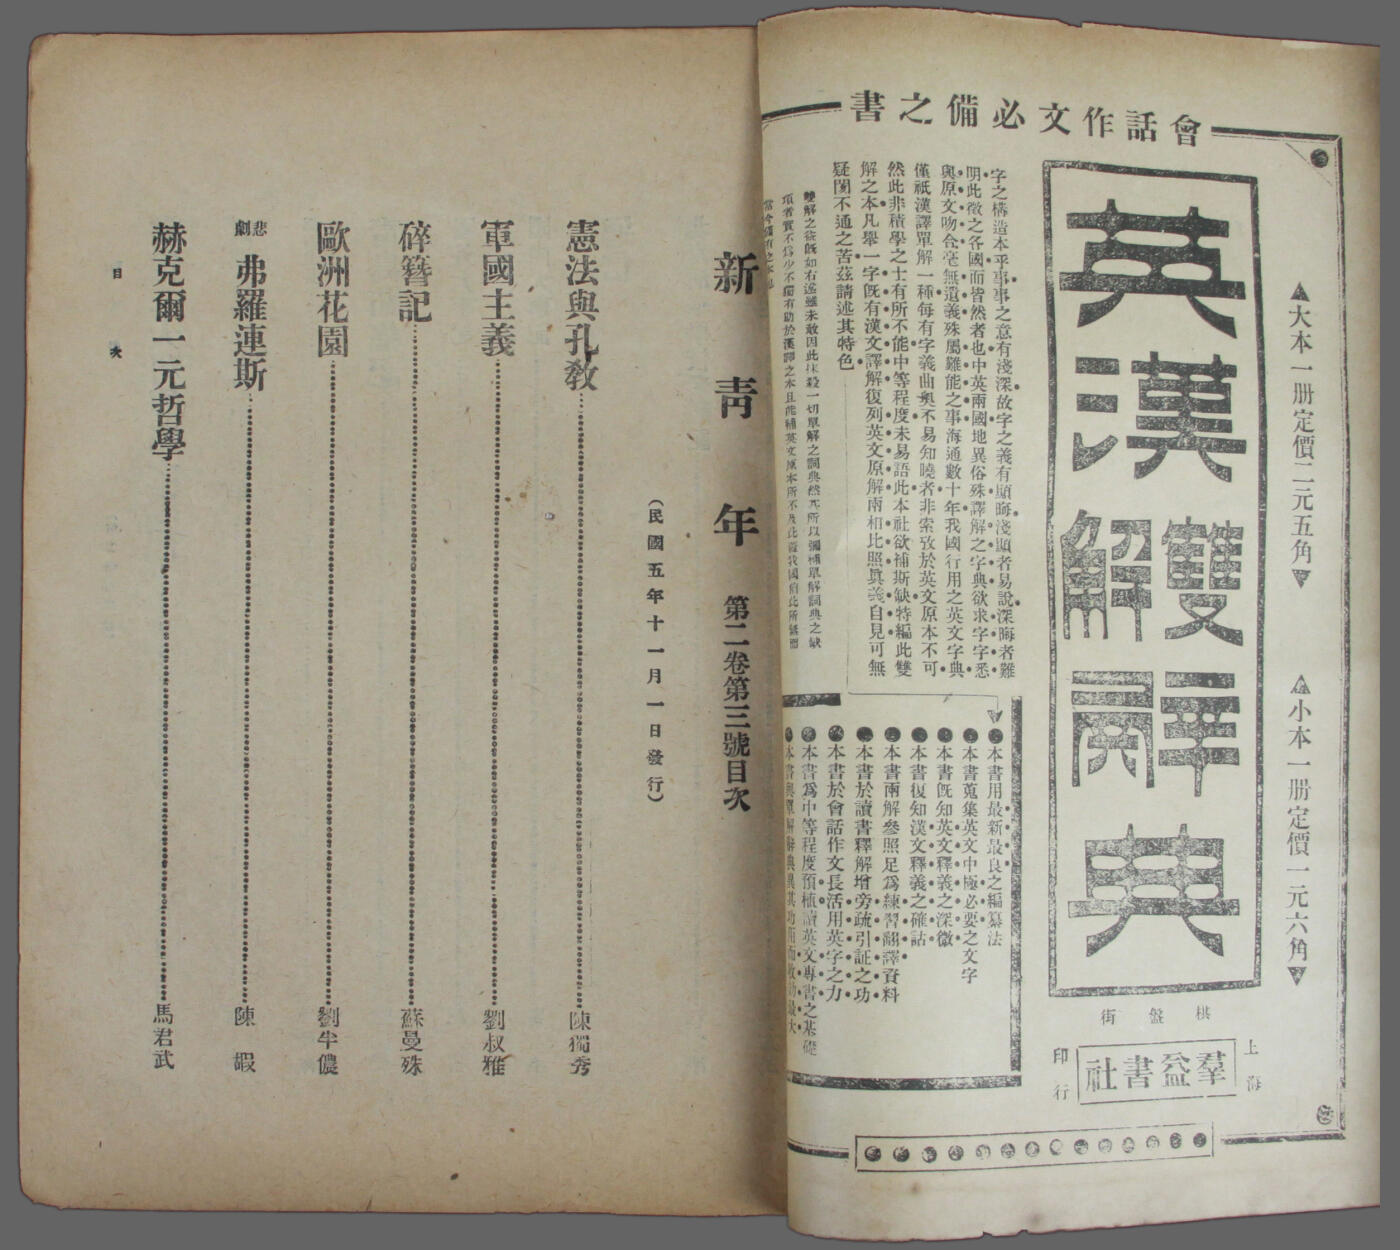 會話作文必備之書
▲大本一册定價二元五角▼
▲小本一册定價一元六角▼
英漢雙解辭典
上海
棋盤街
羣益書社
印行
字之構造本乎事事之意有淺深故字之義有顯晦淺顯者易說深晦者難
明此徵之各國而皆然者也中英兩國地異俗殊譯解之字典欲求字字悉
與原文吻合毫無遺義殊屬難能之事海通數十年我國行用之英文字典
僅祇漢譯單解一種每有字義曲奧不易知曉者非索攷於英文原本不可
然此非積學之士有所不能中等程度未易語此本社欲補斯缺特編此雙
解之本凡舉一字旣有漢文譯解復列英文原解兩相比照眞義自見可無
疑閡不通之苦茲請述其特色
雙解之益旣如右述雖未敢因此抹殺一切單解之詞典然其所以彌補單解詞典之缺
項者實不爲少不獨有助於漢譯之本且能補英文原本所不及此
●本書用最新最良之編纂法
●本書蒐集英文中極必要之文字
●本書旣知英文釋義之深微
●本書復知漢文釋義之確詁
●本書兩解參照足爲練習翻譯資料
●本書於讀書釋解增旁疏引証之功
●本書於會話作文長活用英字之力
●本書爲中等程度預植讀英文專書之基礎
新青年 第二卷第三號目次
（民國五年十一月一日發行）
憲法與孔敎 陳獨秀
軍國主義 劉叔雅
碎簪記 蘇曼殊
歐洲花園 劉半儂
悲劇 弗羅連斯 陳嘏
赫克爾一元哲學 馬君武
目次